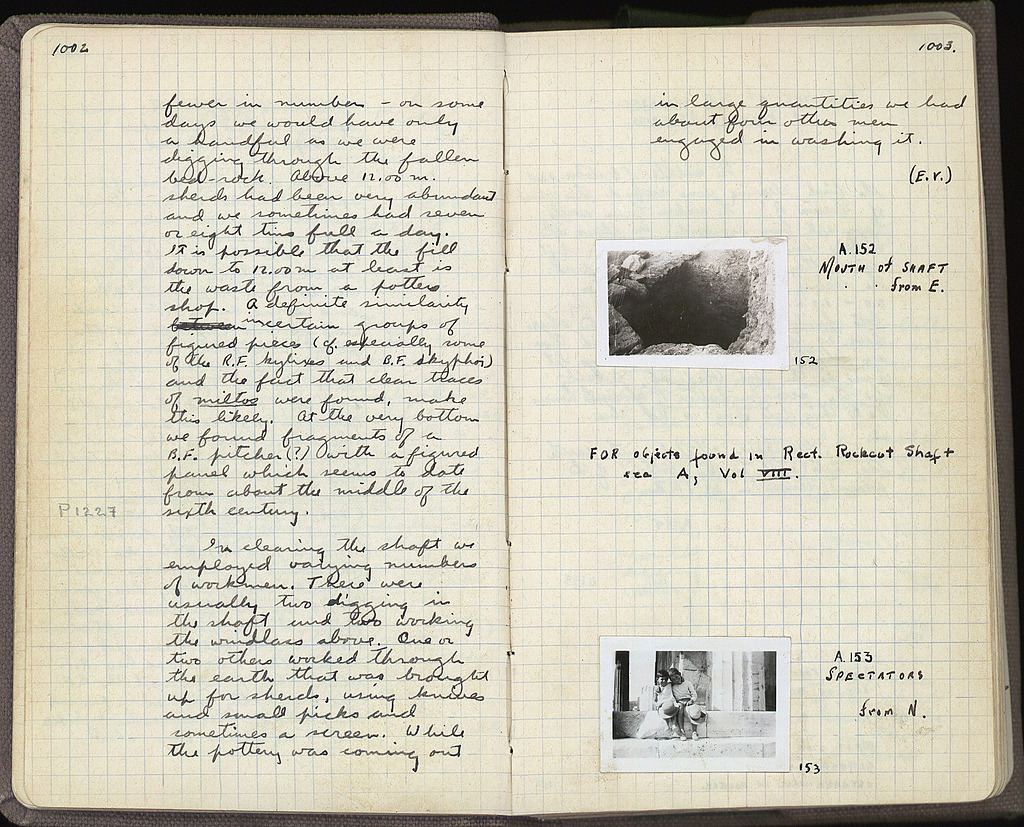 1002
fewer in number - on some
days we would have only
a handful as we were
digging through the fallen
bed-rock. Above 12.00 m.
sherds had been very abundant
and we sometimes had seven
or eight tins full a day.
It is possible that the fill
down to 12.00 m at least is
the waste from a potters
shop. A definite similarity
between in certain groups of
figured pieces (cf. especially some
of the R.F. kylixes and B.F. skyphoi)
and the fact that clear traces
of miltos were found, make
this likely. At the very bottom
we found fragments of a
B.F. pitcher (?) with a figured
panel which seems to date
from about the middle of the
P1227 sixth century.
In clearing the shaft we
employed varying numbers
of workmen. There were
usually two digging in
the shaft and two working
the windlass above. One or
two others worked through
the earth that was brought
up for sherds, using knives
and small picks and
sometimes a screen. While
the pottery was coming out
1003.
in large quantities we had
about four other men
engaged in washing it.
(E.V.)
A.152
Mouth of SHAFT
" " from E.
152
FOR objects found in Rect. Rockcut Shaft
see A, Vol VIII.
A.153
SPECTATORS
from N.
153